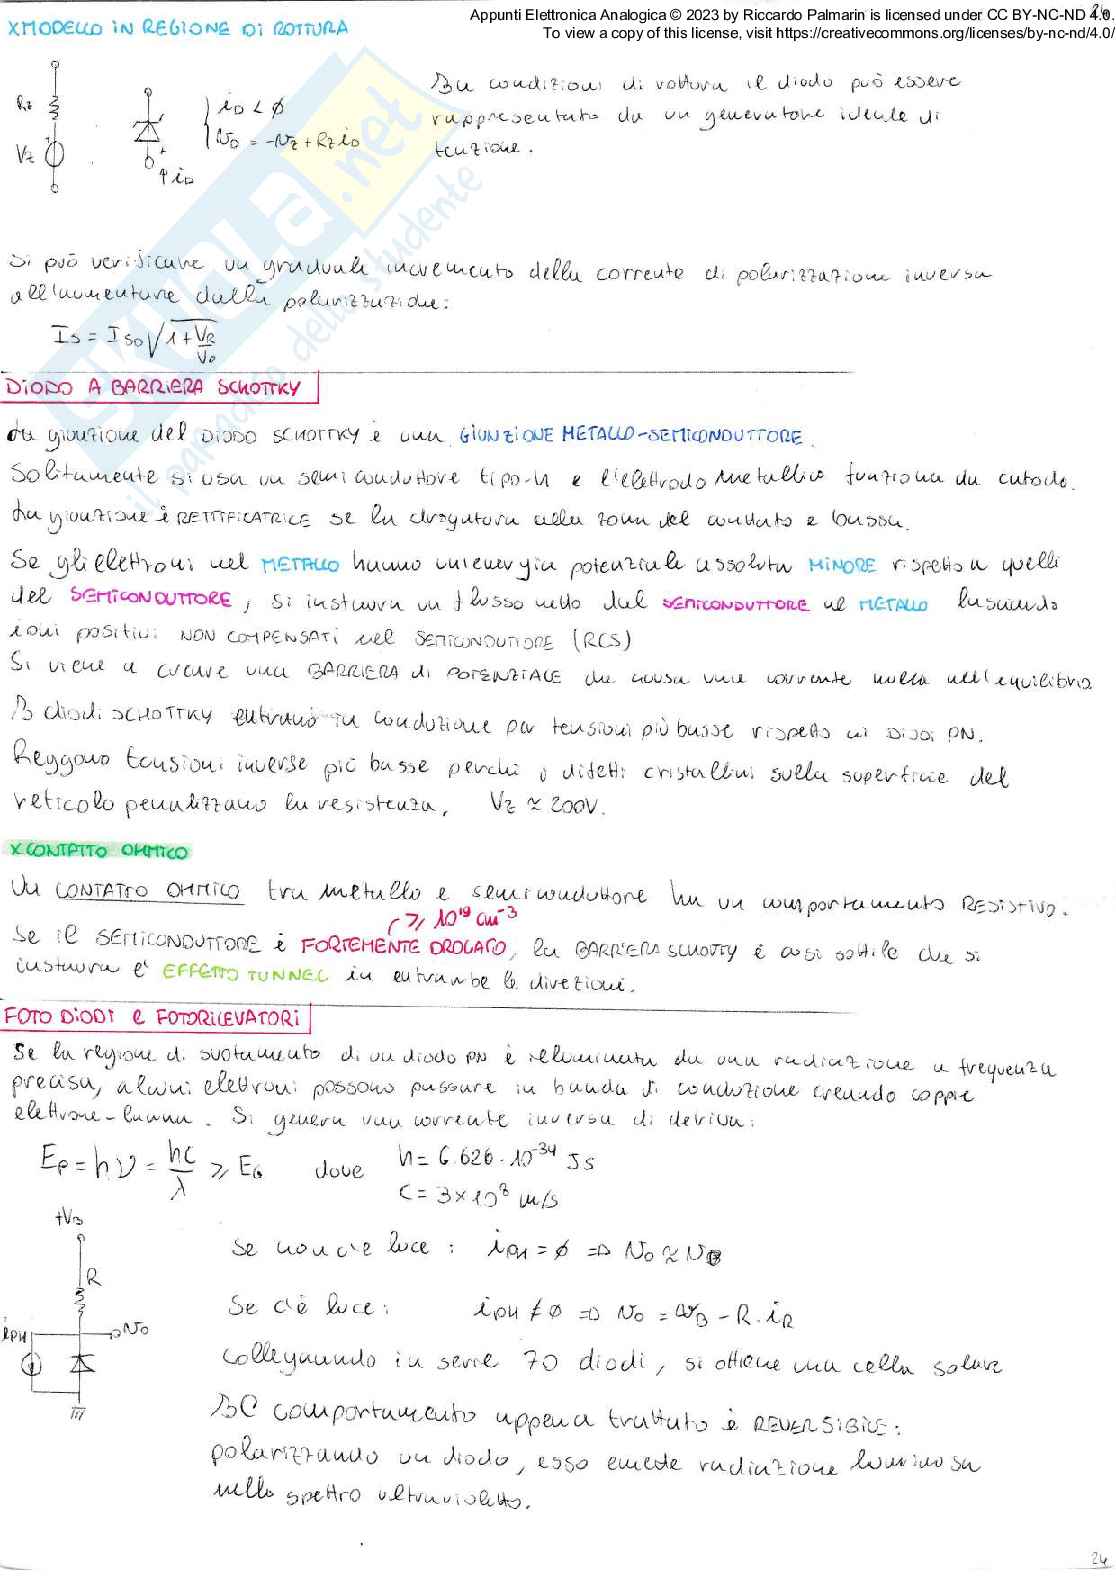 Appunti Elettronica Analogica © 2023 by Riccardo Palmarin is licensed under CC BY-NC-ND 4.0.
To view a copy of this license, visit https://creativecommons.org/licenses/by-nc-nd/4.0/
X MODELLO IN REGIONE DI ROTTURA
Rz
Vz
iD < Ø
vD = -vz + Rz iD
iD
In condizioni di rottura il diodo può essere
rappresentato da un generatore ideale di
tensione.
Si può verificare un graduale incremento della corrente di polarizzazione inversa
all'aumentare della polarizzazione:
Is = Iso √1+VR/Vo
DIODO A BARRIERA SCHOTTKY
La giunzione del DIODO SCHOTTKY è una GIUNZIONE METALLO-SEMICONDUTTORE.
Solitamente si usa un semiconduttore tipo-n e l'elettrodo metallico funziona da catodo.
La giunzione è RETTIFICATRICE se la drogatura alla zona del contatto è bassa.
Se gli elettroni nel METALLO hanno un'energia potenziale assoluta MINORE rispetto a quelli
del SEMICONDUTTORE, si instaura un flusso netto dal SEMICONDUTTORE al METALLO lasciando
ioni positivi NON COMPENSATI nel SEMICONDUTTORE (RCS)
Si viene a creare una BARRIERA di POTENZIALE che causa una corrente nulla nell'equilibrio
I diodi SCHOTTKY entrano in conduzione per tensioni più basse rispetto ai DIODI PN.
Reggono tensioni inverse più basse perché i difetti cristallini sulla superficie del
reticolo penalizzano la resistenza, Vz ≃ 200V.
X CONTATTO OHMICO
Un CONTATTO OHMICO tra metallo e semiconduttore ha un comportamento RESISTIVO.
(≥ 10¹⁹ cm⁻³
Se il SEMICONDUTTORE è FORTEMENTE DROGATO, la BARRIERA SCHOTTY è così sottile che si
instaura l'EFFETTO TUNNEL in entrambe le direzioni.
FOTODIODI e FOTORILEVATORI
Se la regione di svuotamento di un diodo PN è illuminata da una radiazione a frequenza
precisa, alcuni elettroni possono passare in banda di conduzione creando coppie
elettrone-lacuna. Si genera una corrente inversa di deriva:
Ep = hν = hc/λ ≥ EG dove h = 6.626·10⁻³⁴ Js
c = 3×10⁸ m/s
+VB
R
iPH
vo
Se non c'è luce: iPH = Ø ⇒ vo ≃ vB
Se c'è luce: iPH ≠ Ø ⇒ vo = vB - R·iR
Collegando in serie 70 diodi, si ottiene una cella solare
Il comportamento appena trattato è REVERSIBILE:
polarizzando un diodo, esso emette radiazione luminosa
nello spettro ultravioletto.
24
SKUOLA.net
il paradiso dello studente